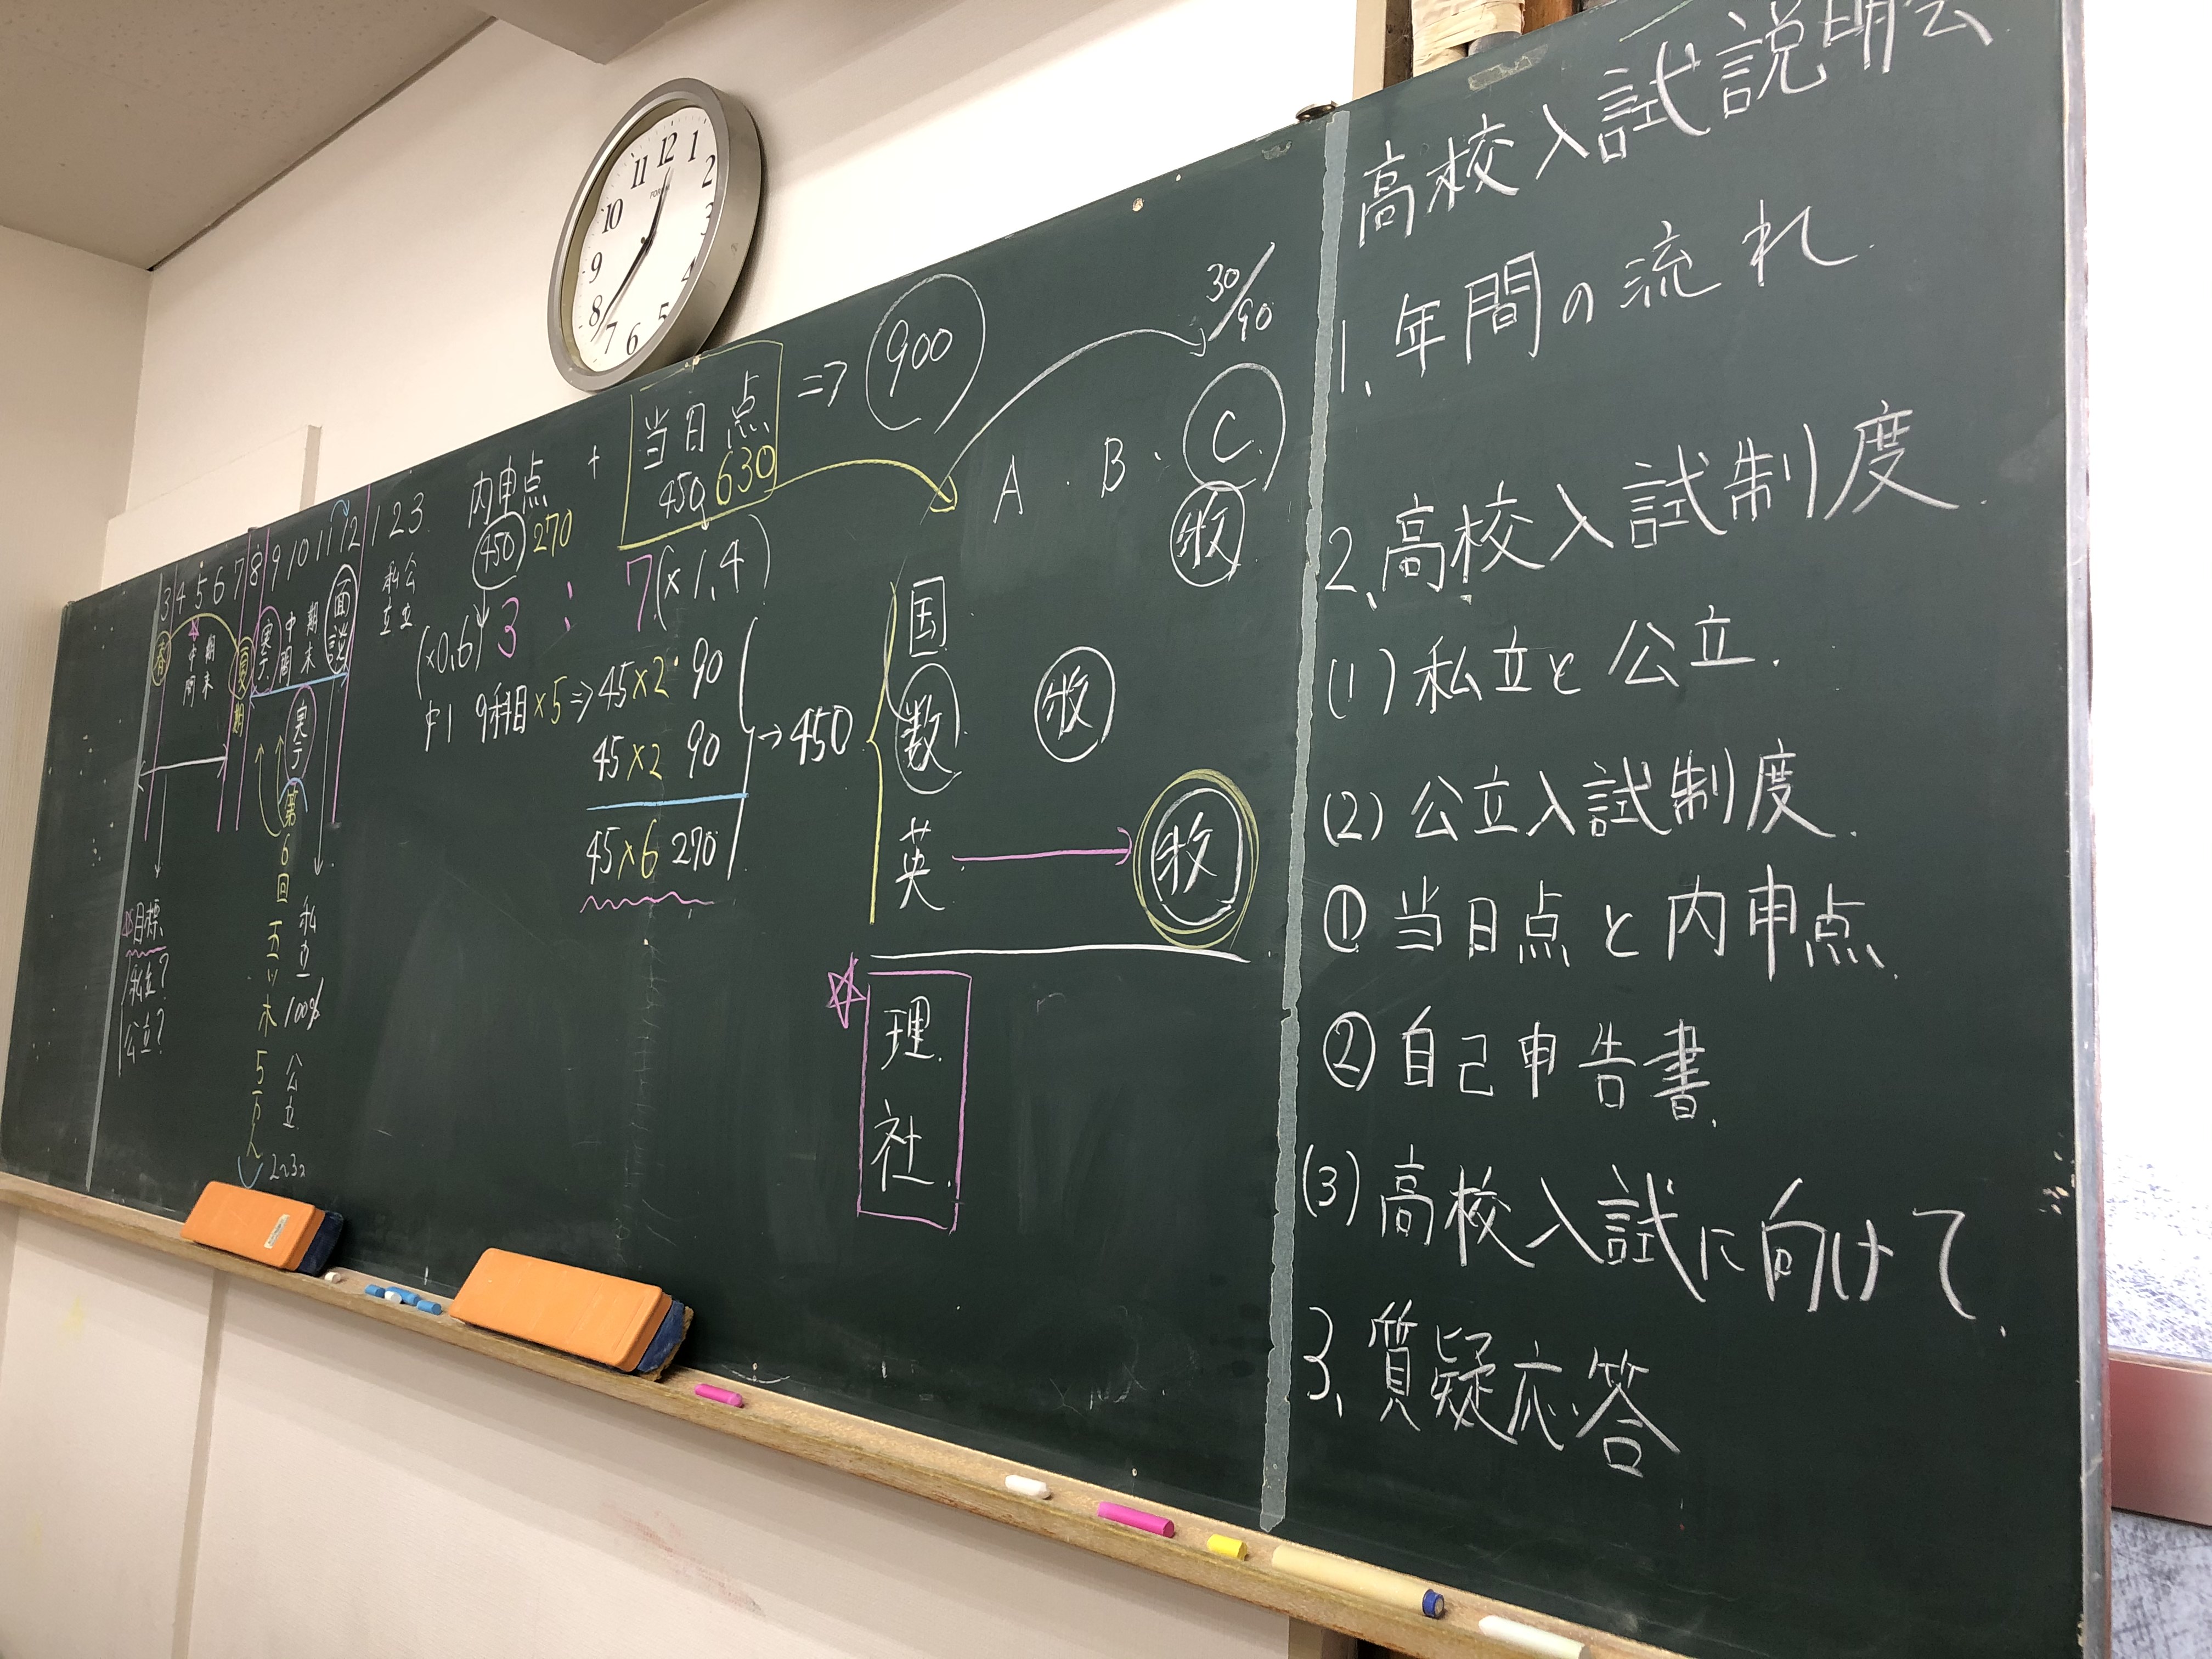 高校入試説明会
1、年間の流れ
2、高校入試制度
(1)私立と公立
(2)公立入試制度
①当日点と内申点
②自己申告書
(3)高校入試に向けて
3、質疑応答
12 1 2 3 4 5 6 7 8 9 10 11
3 4 5 6 7 8 9 10 11 12 1 2 3
私立 公立
春 中間 期末 夏期 実テ 中間 期末 面談
実テ
第6回 五ツ木 5万人
私立 100%
公立
2〜3コ
目標
私立?
公立?
内申点 + 当日点 ⇒ 900
450 270 450 630
(×0.6) 3 : 7 (×1.4)
中1 9科目×5⇒45×2 90
45×2 90
45×6 270
→450
30/90
A・B・C
国
数
英
理
社